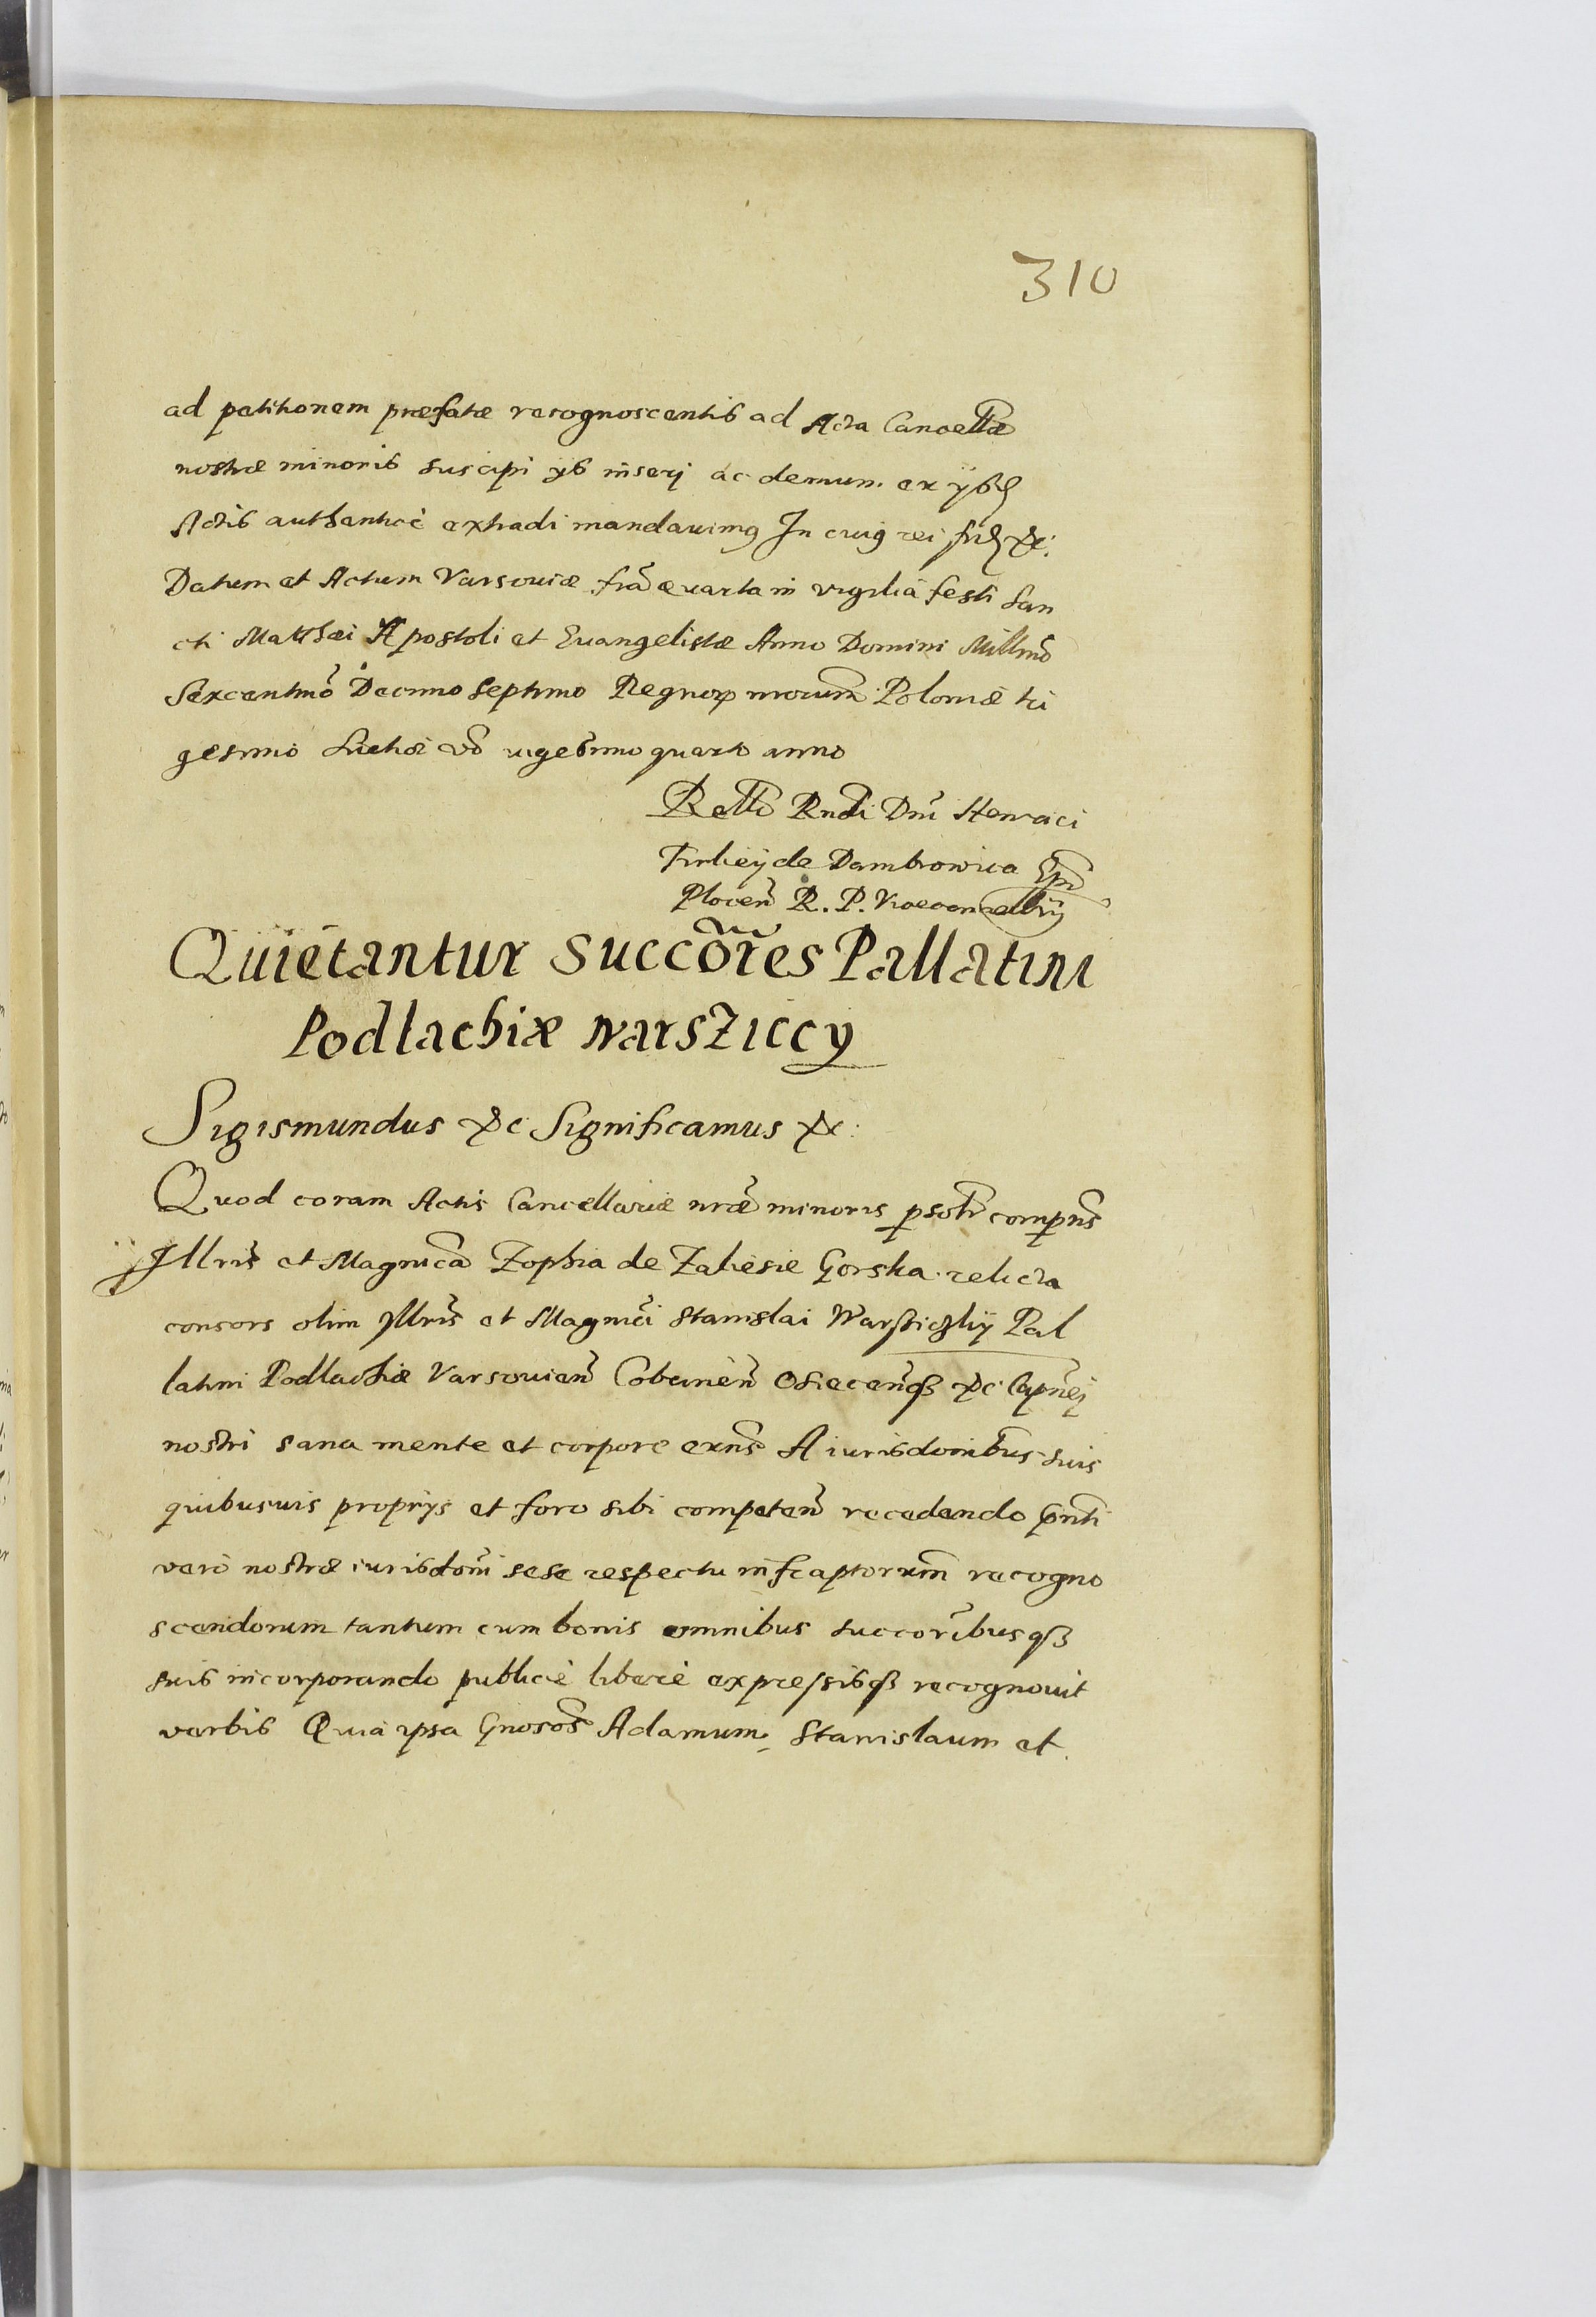 310
ad petitionem præfatæ recognoscentis ad Acta Cancellæ
nostræ minoris suscipi ijs inserj ac demum ex ijsd
Actis authenticè extradi mandauimq In cuiq rei fid &c:
Datum et Actum Varsouiæ fria quarta in vigilia festi San
cti Matthæi Apostoli et Euangelistæ Anno Domini Millmo
Sexcentmo Decimo Septimo Regnorꝝ nrorum Poloniæ tri
gesimo Suetiæ vo vigesimo quarto anno
Rello Rndi Dni Henrici
Firlej de Dambrowica Epi
Plocen R. P. Vicecancellrij
Quietantur Succores Pallatini
Podlachiæ Warsziccy
Sigismundus &c Significamus &c:
Quod coram Actis Cancellariæ nræ minoris psoltr comprns
Illris et Magnica Zophia de Zaliesie Gorska relicta
consors olim Illris et Magnici Stanislai Warszickij Pal
latini Podlachiæ Varsouien Cobrinen Osiecenqȝ &c Capnej
nostri sana mente et corpore exns A iurisdonibus suis
quibusuis proprijs et foro sibi competen recedendo pnti
verò nostræ iurisdoni sese respectu infraptorum recogno
scendorum tantum cum bonis omnibus succoribusqȝ
suis incorporando publicè liberè expressisqȝ recognouit
verbis Quia ipsa Gnosos Adamum, Stanislaum et